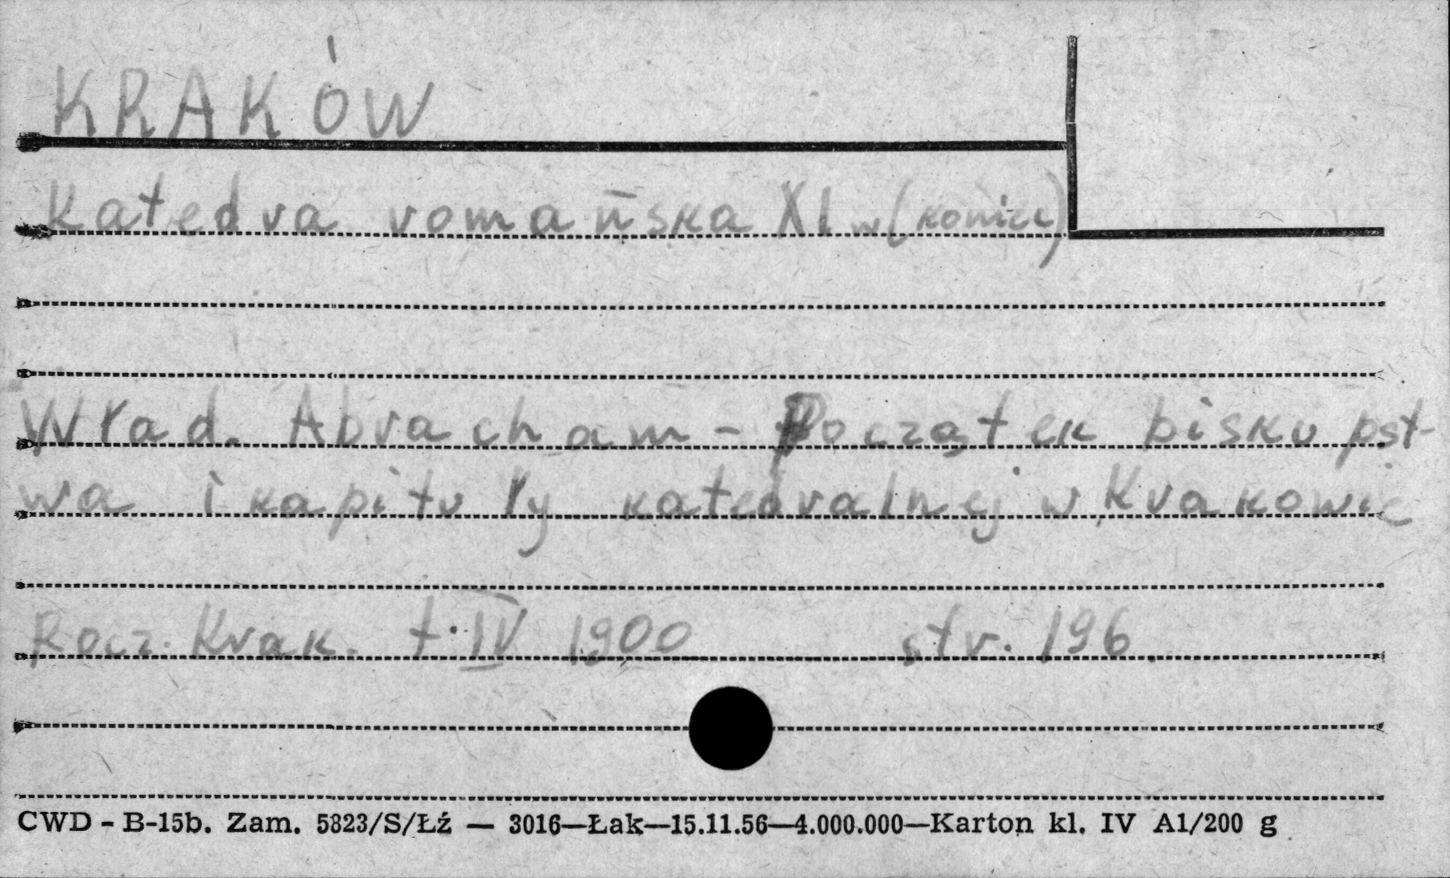 KRAKÓW
Katedra romańska XI w (koniec)
Wład. Abracham - Początek biskupst-
wa i kapituły katedralnej w Krakowie
Rocz. Krak. t. IV 1900 str. 196.
CWD - B-15b. Zam. 5823/S/Łź — 3016—Łak—15.11.56—4.000.000—Karton kl. IV A1/200 g